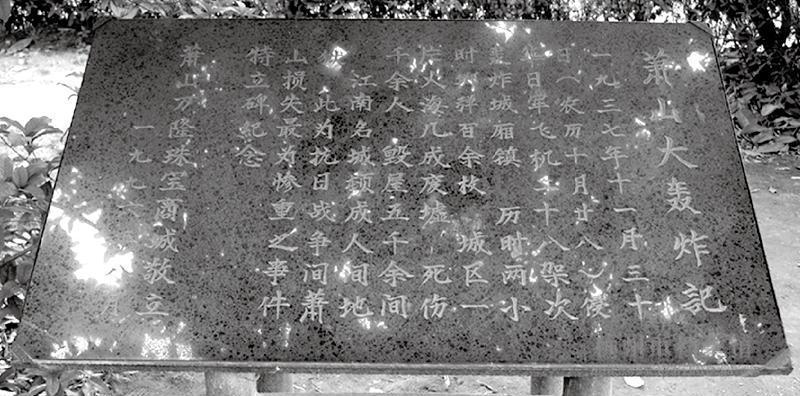 萧山大轰炸記
一九三七年十一月三十
日(农历十月廿八)侵
华日军飞机二十八架次
轰炸城厢镇 历时两小
时 弹百余枚 城区一
片火海几成废墟 死伤
千余人 毁屋五千余间
江南名城顿成人间地
此为抗日战争间萧
山损失最为惨重之事件
特立碑紀念
萧山万隆珠宝商城敬立
一九九 月